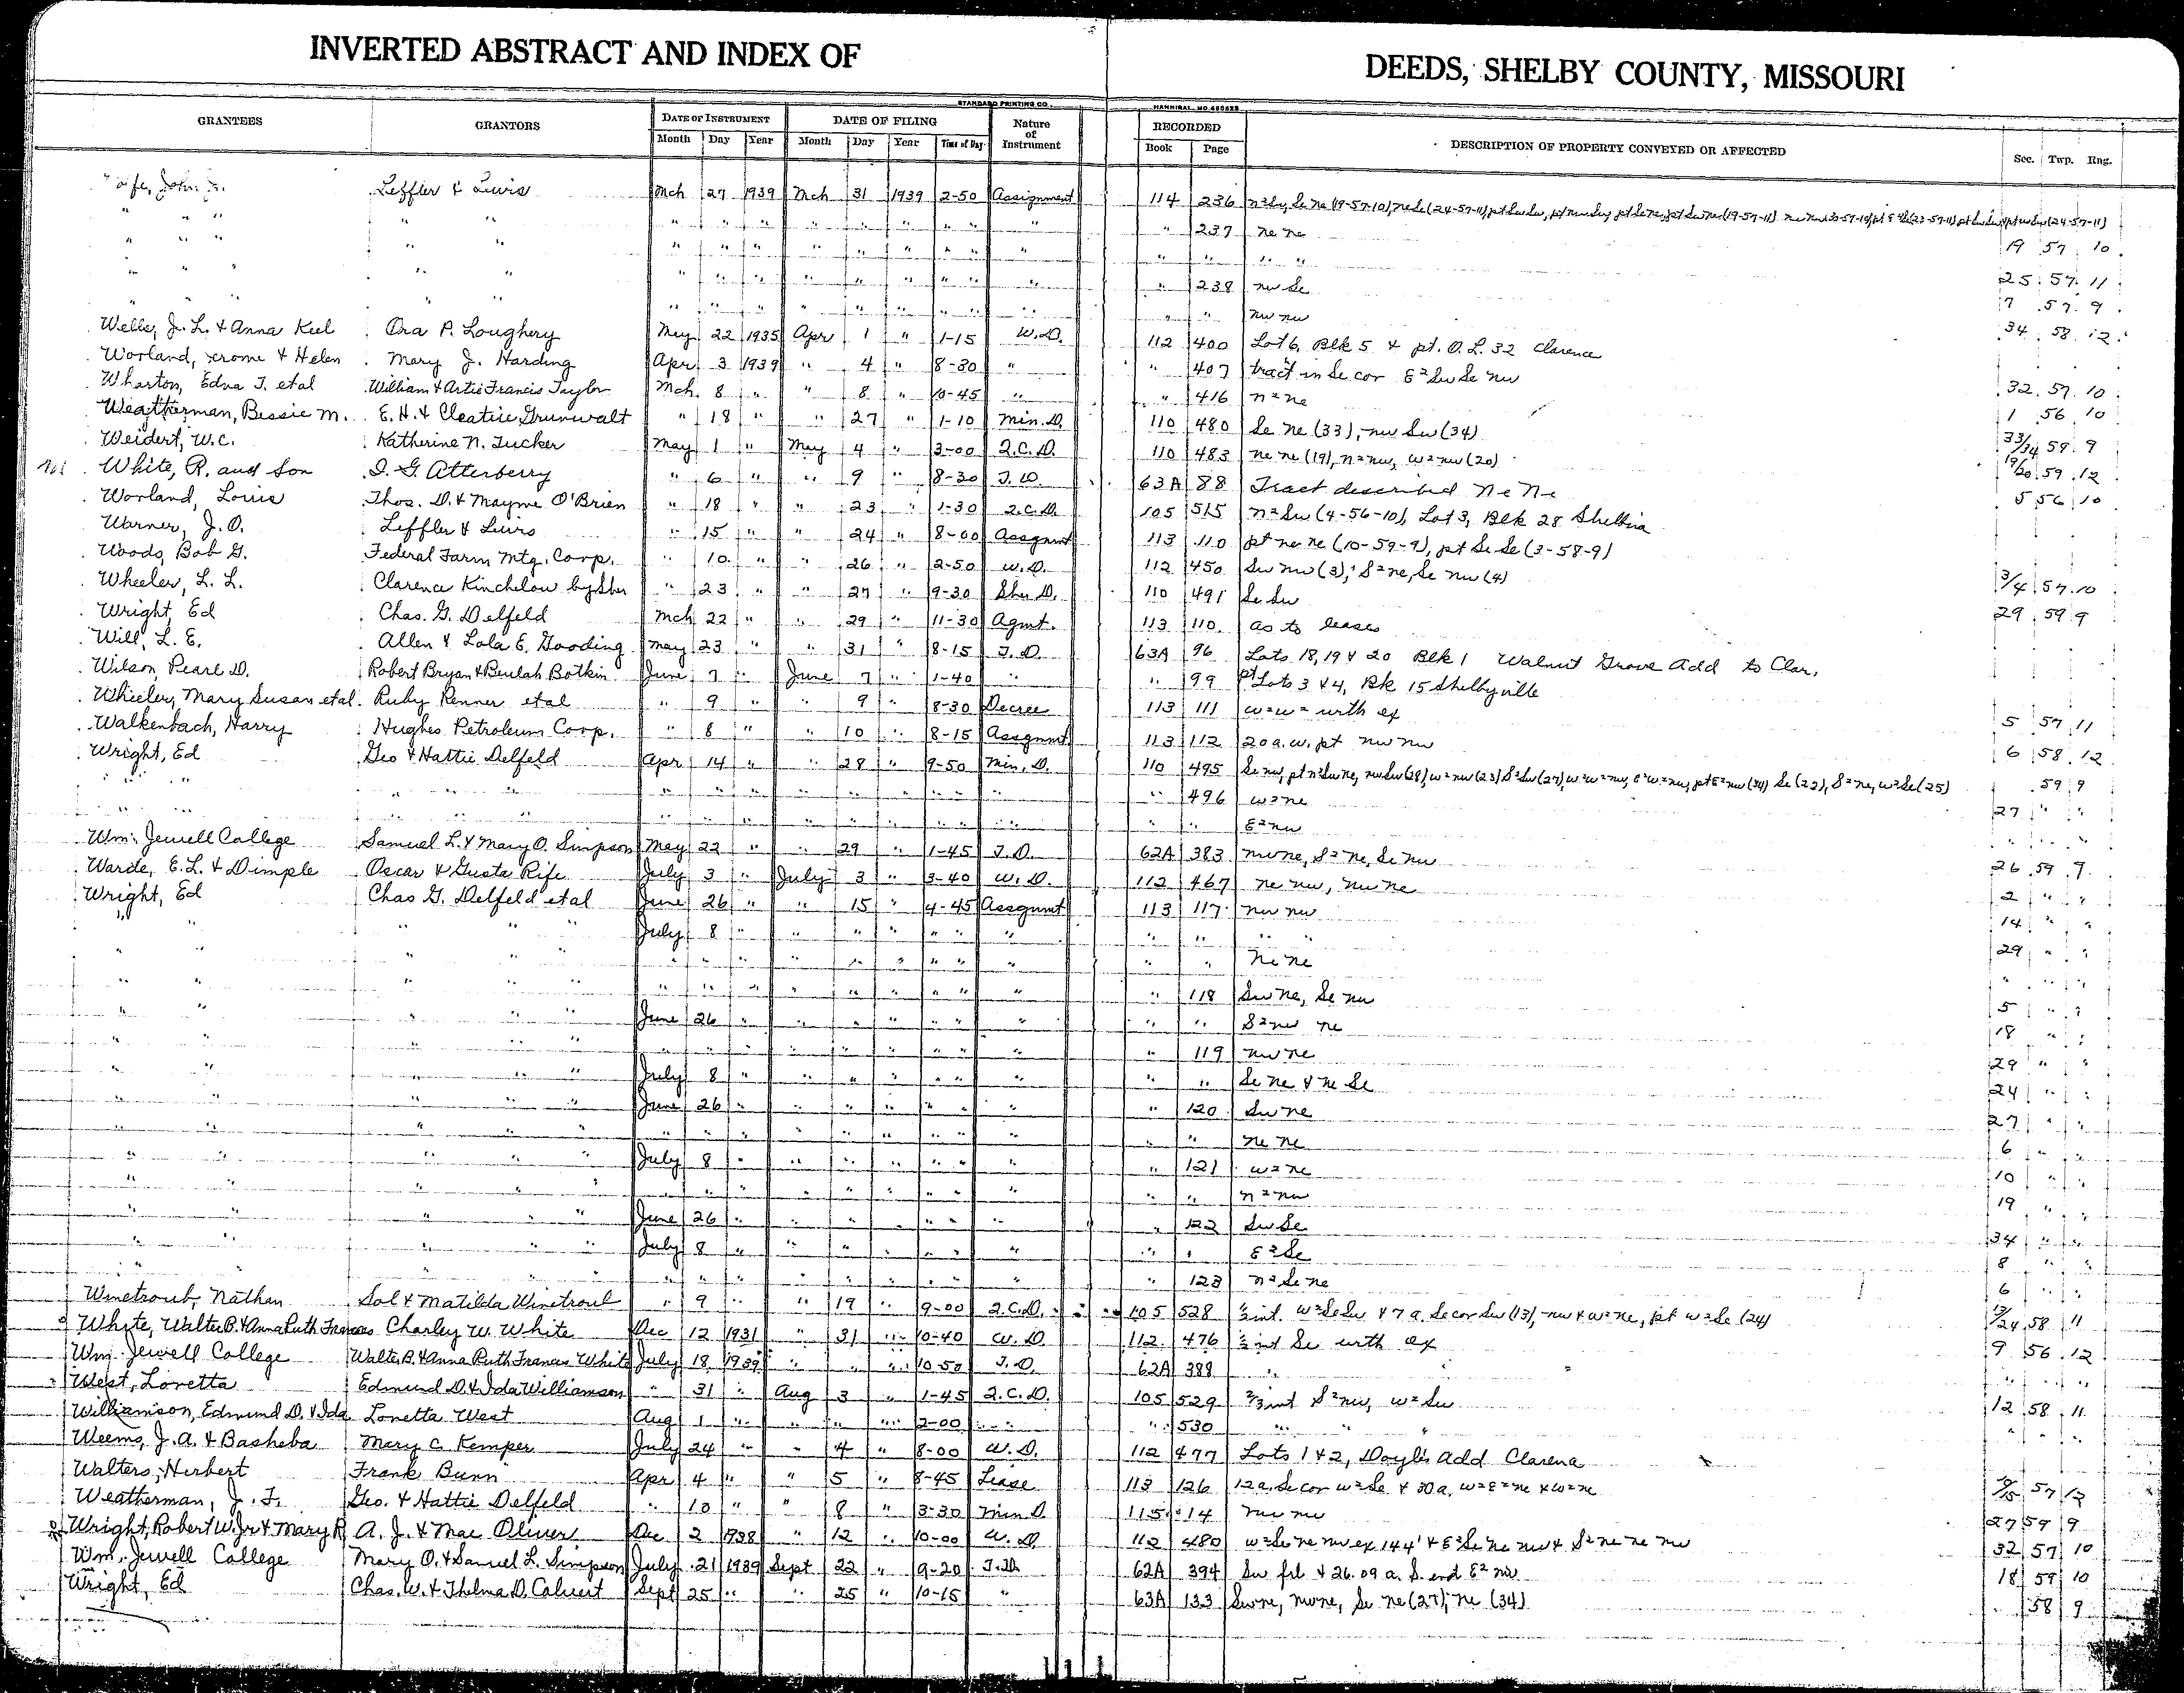 INVERTED ABSTRACT AND INDEX OF DEEDS, SHELBY COUNTY, MISSOURI
STANDARD PRINTING CO. HANNIBAL, MO.
GRANTEES GRANTORS DATE OF INSTRUMENT DATE OF FILING Nature of Instrument RECORDED DESCRIPTION OF PROPERTY CONVEYED OR AFFECTED Sec. Twp. Rng.
Month Day Year Month Day Year Time of Day Book Page
John Leffler & Lewis Mch 27 1939 Mch 31 1939 2-50 Assignment 114 236
" " " " " " " " " " " " " 237 ne ne 19 57 10
" " " " " " " " " " " " " " " " 25 57 11
" " " " " " " " " " " " " 238 nw Se 7 57 9
" " " " " " " " " " " " " " nw nw 34 58 12
Welle, J. L. & Anna Keel Ora P. Loughery May 22 1935 Apr 1 " 1-15 W.D. 112 400 Lot 6, Blk 5 & pt. O. L. 32 Clarence
Worland, Jerome & Helen Mary J. Harding Apr 3 1939 " 4 " 8-30 " " 407 tract in Se cor E² Sw Se nw 32 57 10
Wharton, Edna J. etal William & Artie Francis Taylor Mch 8 " " 8 " 10-45 " " 416 n² ne 1 56 10
Weatherman, Bessie M. E. H. & Cleatrice Grunwalt " 18 " " 27 " 1-10 Min. D. 110 480 Se ne (33), nw Sw (34) 33/34 59 9
Weidert, W. C. Katherine N. Tucker May 1 " May 4 " 3-00 Q.C.D. 110 483 ne ne (19), n² nw, w² nw (20) 19/20 59 12
White, R. and Son I. G. Atterberry " 6 " " 9 " 8-30 T.D. 63A 88 Tract described ne ne 5 56 10
Worland, Louis Thos. D. & Mayme O'Brien " 18 " " 23 " 1-30 Q.C.D. 105 515 n² Sw (4-56-10), Lot 3, Blk 28 Shelbina
Warner, J. O. Leffler & Lewis " 15 " " 24 " 8-00 Assgnmt 113 110 pt ne ne (10-59-9), pt Se Se (3-58-9)
Woods, Bob G. Federal Farm Mtg. Corp. " 10 " " 26 " 2-50 W.D. 112 450 Sw nw (3), S² ne, Se nw (4) 3/4 57 10
Wheeler, L. L. Clarence Kinchelow by Sher " 23 " " 27 " 9-30 Sher D. 110 491 Se Sw 29 59 9
Wright, Ed Chas. G. Delfeld Mch 22 " " 29 " 11-30 Agmt. 113 110 as to leases
Will, L. E. Allen & Lola E. Gooding May 23 " " 31 " 8-15 T.D. 63A 96 Lots 18, 19 & 20 Blk 1 Walnut Grove Add to Clar.
Wilson, Pearl D. Robert Bryan & Beulah Botkin June 7 " June 7 " 1-40 " " 99 pt Lots 3 & 4, Blk 15 Shelbyville
Wheeler, Mary Susan etal. Ruby Renner etal " 9 " " 9 " 8-30 Decree 113 111 w² w² with ex 5 57 11
Walkenbach, Harry Hughes Petroleum Corp. " 8 " " 10 " 8-15 Assgnmt 113 112 20 a. w. pt nw nw 6 58 12
Wright, Ed Geo & Hattie Delfeld Apr 14 " " 28 " 9-50 Min. D. 110 495 59 9
" " " " " " " " " " " " " 496 w² ne 27 " "
" " " " " " " " " " " " " " E² nw " " "
Wm. Jewell College Samuel L. & Mary O. Simpson May 22 " " 29 " 1-45 T.D. 62A 383 nw ne, S² ne, Se nw 26 59 9
Warde, E. L. & Dimple Oscar & Gusta Rife July 3 " July 3 " 3-40 W.D. 112 467 ne nw, nw ne 2 " "
Wright, Ed Chas G. Delfeld etal June 26 " " 15 " 4-45 Assgnmt 113 117 nw nw 14 " "
" " " July 8 " " " " " " " " " " " 29 " "
" " " " " " " " " " " " " ne ne " " "
" " " " " " " " " " " " 118 Sw ne, Se nw 5 " "
" " " June 26 " " " " " " " " S² nw ne 18 " "
" " " " " " " " " " " " 119 nw ne 29 " "
" " " July 8 " " " " " " " " Se ne & ne Se 24 " "
" " " June 26 " " " " " " " 120 Sw ne 27 " "
" " " " " " " " " " " " " ne ne 6 " "
" " " July 8 " " " " " " " 121 w² ne 10 " "
" " " " " " " " " " " " " n² nw 19 " "
" " " June 26 " " " " " " " 122 Sw Se 34 " "
" " " July 8 " " " " " " " " E² Se 8 " "
" " " " " " " " " " " " 123 n² Se ne 6 " "
Winetroub, Nathan Sol & Matilda Winetroub " 9 " " 19 " 9-00 Q.C.D. 105 528 ½ int. w² Se Sw & 7 a. Se cor Sw (13), nw & w² ne, pt w² Se (24) 13/24 58 11
White, Walter B. & Anna Ruth Frances Charley W. White Dec 12 1931 " 31 " 10-40 W.D. 112 476 ½ int Se with ex 9 56 12
Wm. Jewell College Walter B. & Anna Ruth Frances White July 18 1939 " " " 10-50 T.D. 62A 388 " " " " "
West, Loretta Edmund D. & Ida Williamson " 31 " Aug 3 " 1-45 Q.C.D. 105 529 ⅔ int S² nw, w² Sw 12 58 11
Williamson, Edmund D. & Ida Loretta West Aug 1 " " " " 2-00 " " 530 " " " " "
Weems, J. A. & Basheba Mary C. Kemper July 24 " " 4 " 8-00 W.D. 112 477 Lots 1 & 2, Doyle's Add Clarence
Walters, Herbert Frank Bunn Apr 4 " " 5 " 8-45 Lease 113 126 12 a. Se cor w² Se & 30 a. w² E² ne & w² ne 57 12
Weatherman, J. F. Geo. & Hattie Delfeld " 10 " " 8 " 3-30 Min D. 115 14 nw nw 27 59 9
Wright, Robert W. Jr & Mary R A. J. & Mae Oliver Dec 2 1938 " 12 " 10-00 W.D. 112 480 w² Se ne nw ex 144' & E² Se ne nw & S² ne ne nw 32 57 10
Wm. Jewell College Mary O. & Samuel L. Simpson July 21 1939 Sept 22 " 9-20 T.D. 62A 394 Sw frl & 26.09 a. S. end E² nw 18 59 10
Wright, Ed Chas. W. & Thelma D. Calvert Sept 25 " " 25 " 10-15 " 63A 133 Sw ne, nw ne, Se ne (27), ne (34) 58 9